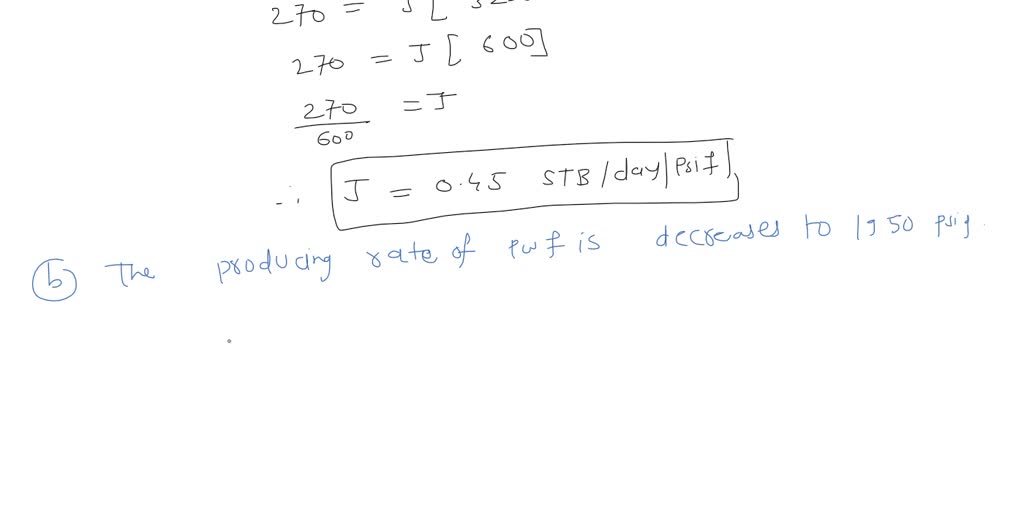 270 = J [
270 = J [ 600]
270/600 = J
∴ J = 0.45 STB/day/Psif
(b) The producing rate of pwf is decreases to 1950 psig.